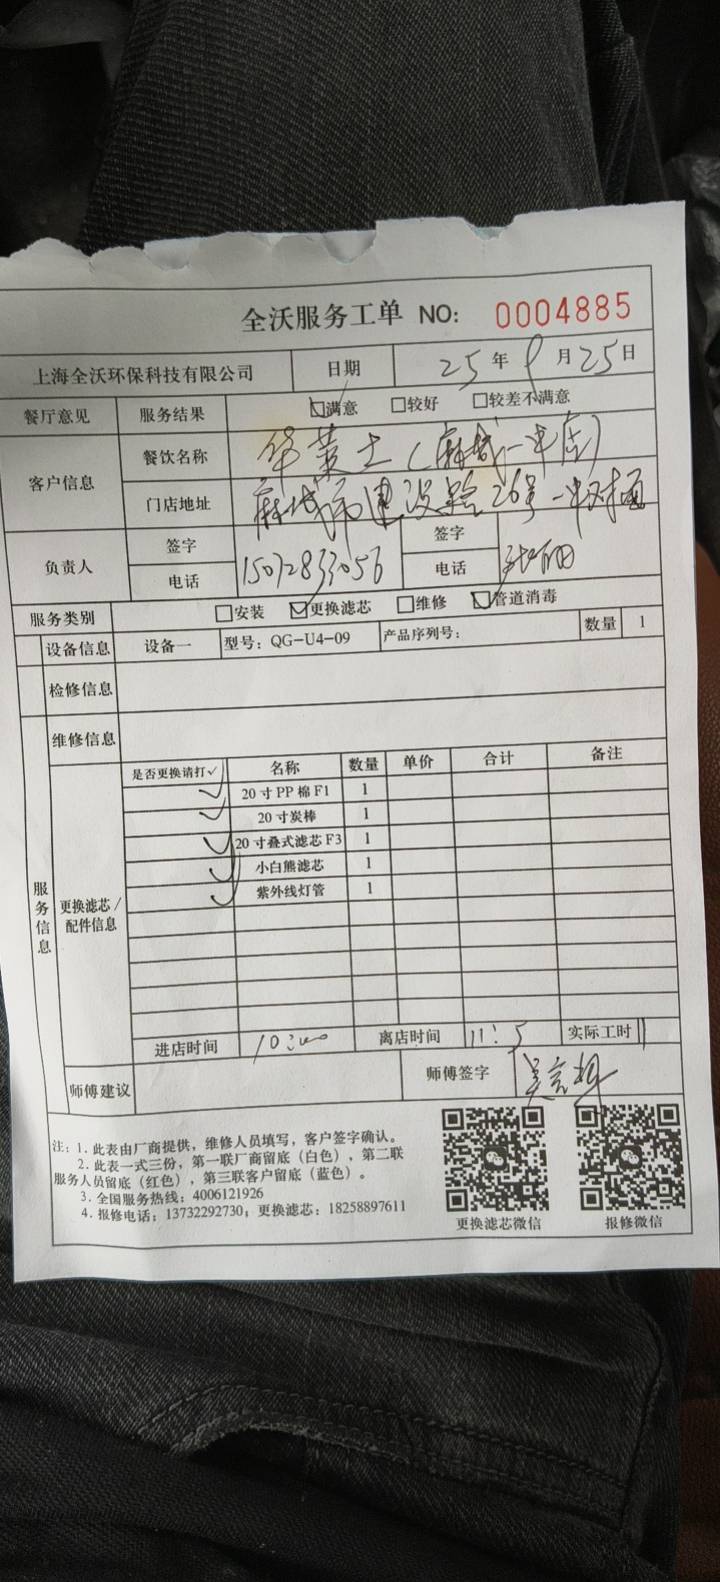 全沃服务工单 NO: 0004885
上海全沃环保科技有限公司 日期 25年9月25日
餐厅意见 服务结果 ☑满意 □较好 □较差不满意
客户信息 餐饮名称 华莱士(麻城一中店)
门店地址 麻城市建设路26号一中对面
负责人 签字 签字
电话 15072833056 电话
服务类别 □安装 ☑更换滤芯 □维修 ☑管道消毒
设备信息 设备一 型号：QG-U4-09 产品序列号： 数量 1
检修信息
维修信息
服务信息 更换滤芯/配件信息
是否更换请打✓ 名称 数量 单价 合计 备注
✓ 20寸PP棉F1 1
✓ 20寸炭棒 1
✓ 20寸叠式滤芯F3 1
✓ 小白熊滤芯 1
✓ 紫外线灯管 1
进店时间 10:00 离店时间 11:5 实际工时
师傅建议 师傅签字
注：1. 此表由厂商提供，维修人员填写，客户签字确认。
2. 此表一式三份，第一联厂商留底（白色），第二联
服务人员留底（红色），第三联客户留底（蓝色）。
3. 全国服务热线：4006121926
4. 报修电话：13732292730；更换滤芯：18258897611
更换滤芯微信 报修微信